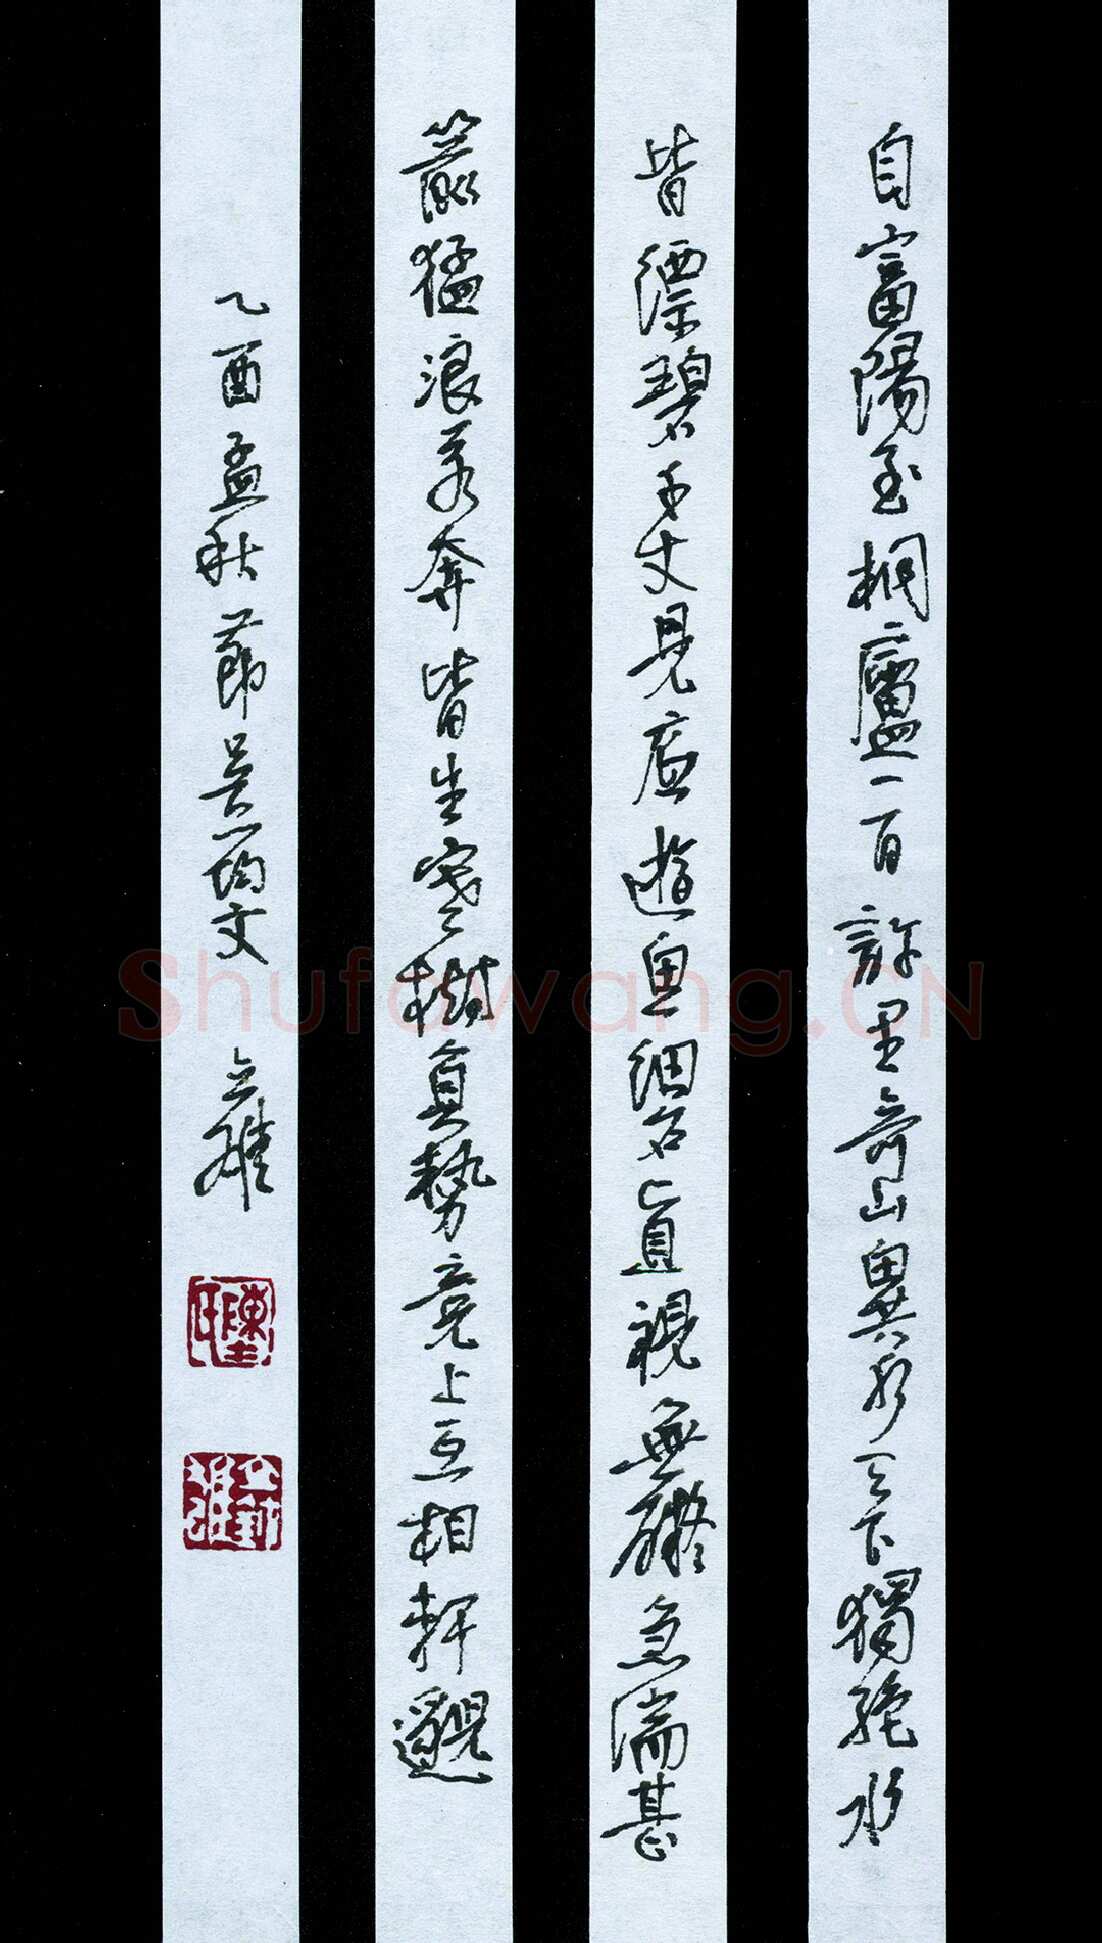 自富陽至桐廬一百許里奇山異水天下獨絶水
皆縹碧千丈見底遊魚細石直視無礙急湍甚
箭猛浪若奔皆生寒樹負勢競上互相軒邈
乙酉孟秋節吴均文 立雄
Shufawang.CN